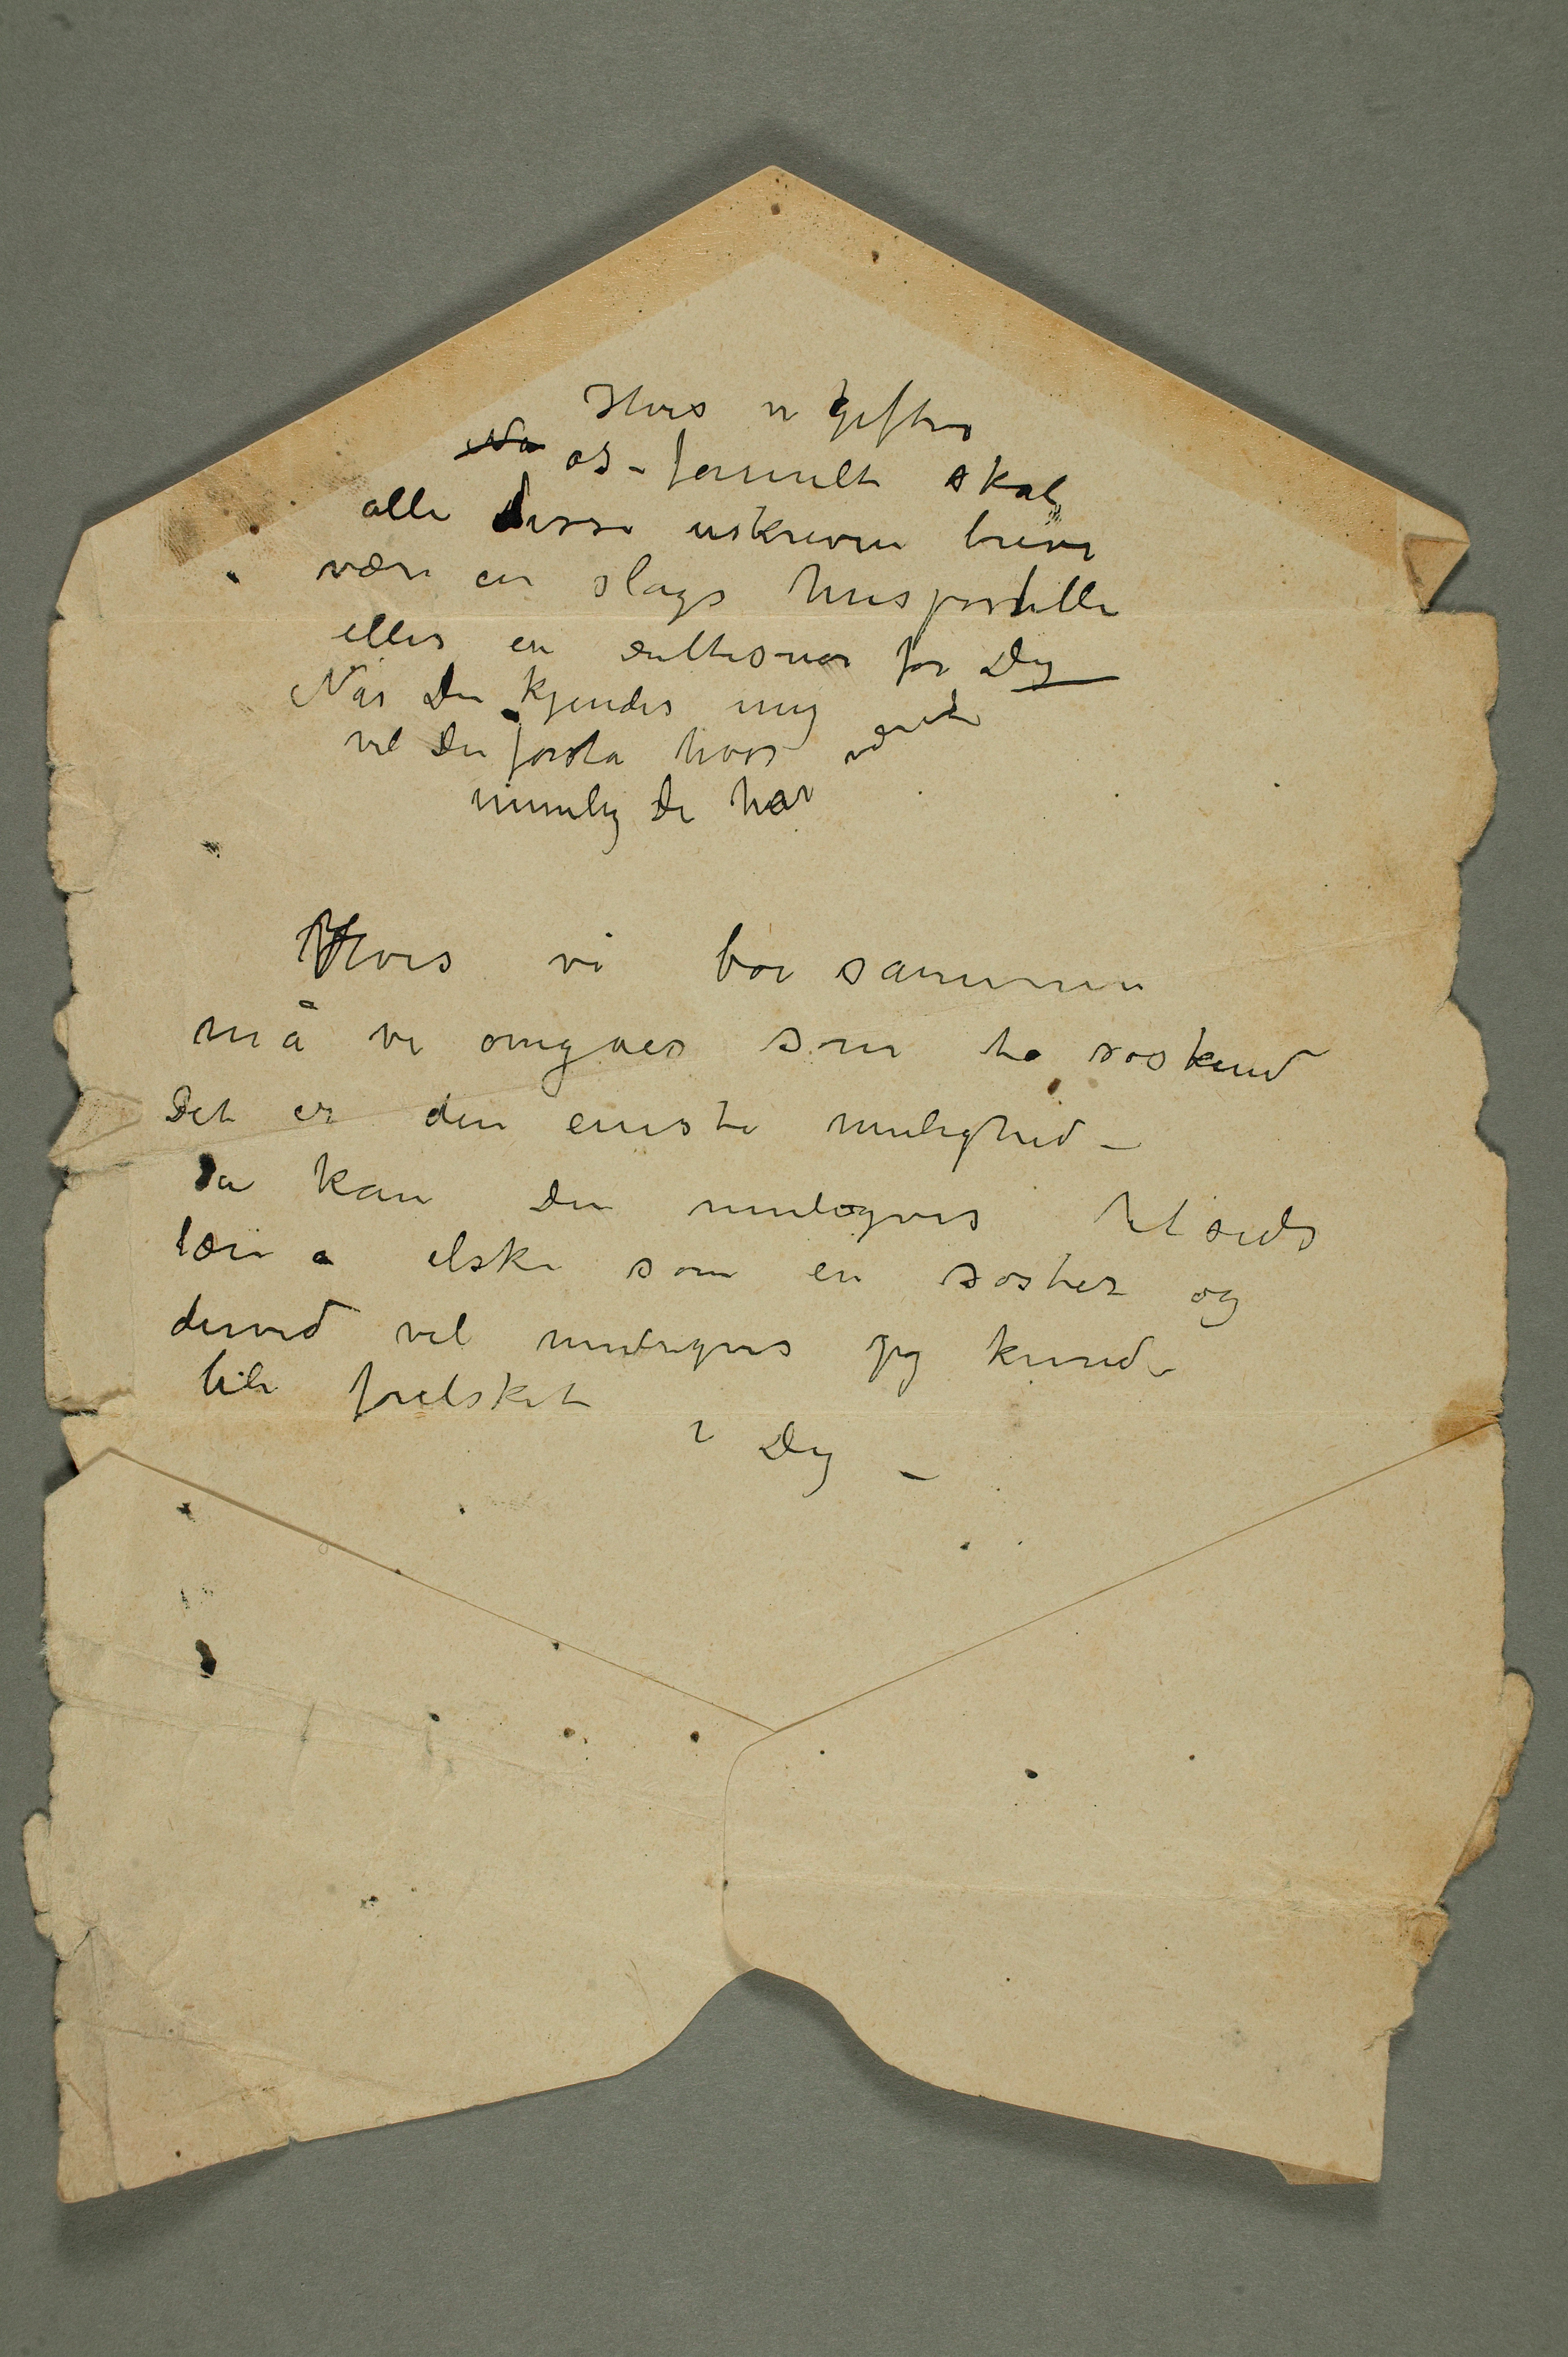 Hvis vi gifter
Nå os – formelt skal
alle disse uskreven breve
være en slags huspostille
eller en rettesnor for Dig
Når Du kjender mig
vil Du forstå hvor
umulig De har været
Hvis vi bor sammen
må vi omgåes som to søskend
Det er den eneste mulighed –
Da kan Du muligvis
lære a elske som en søster og
derved vil muligvis jeg kunde
bli forelsket
i Dig –